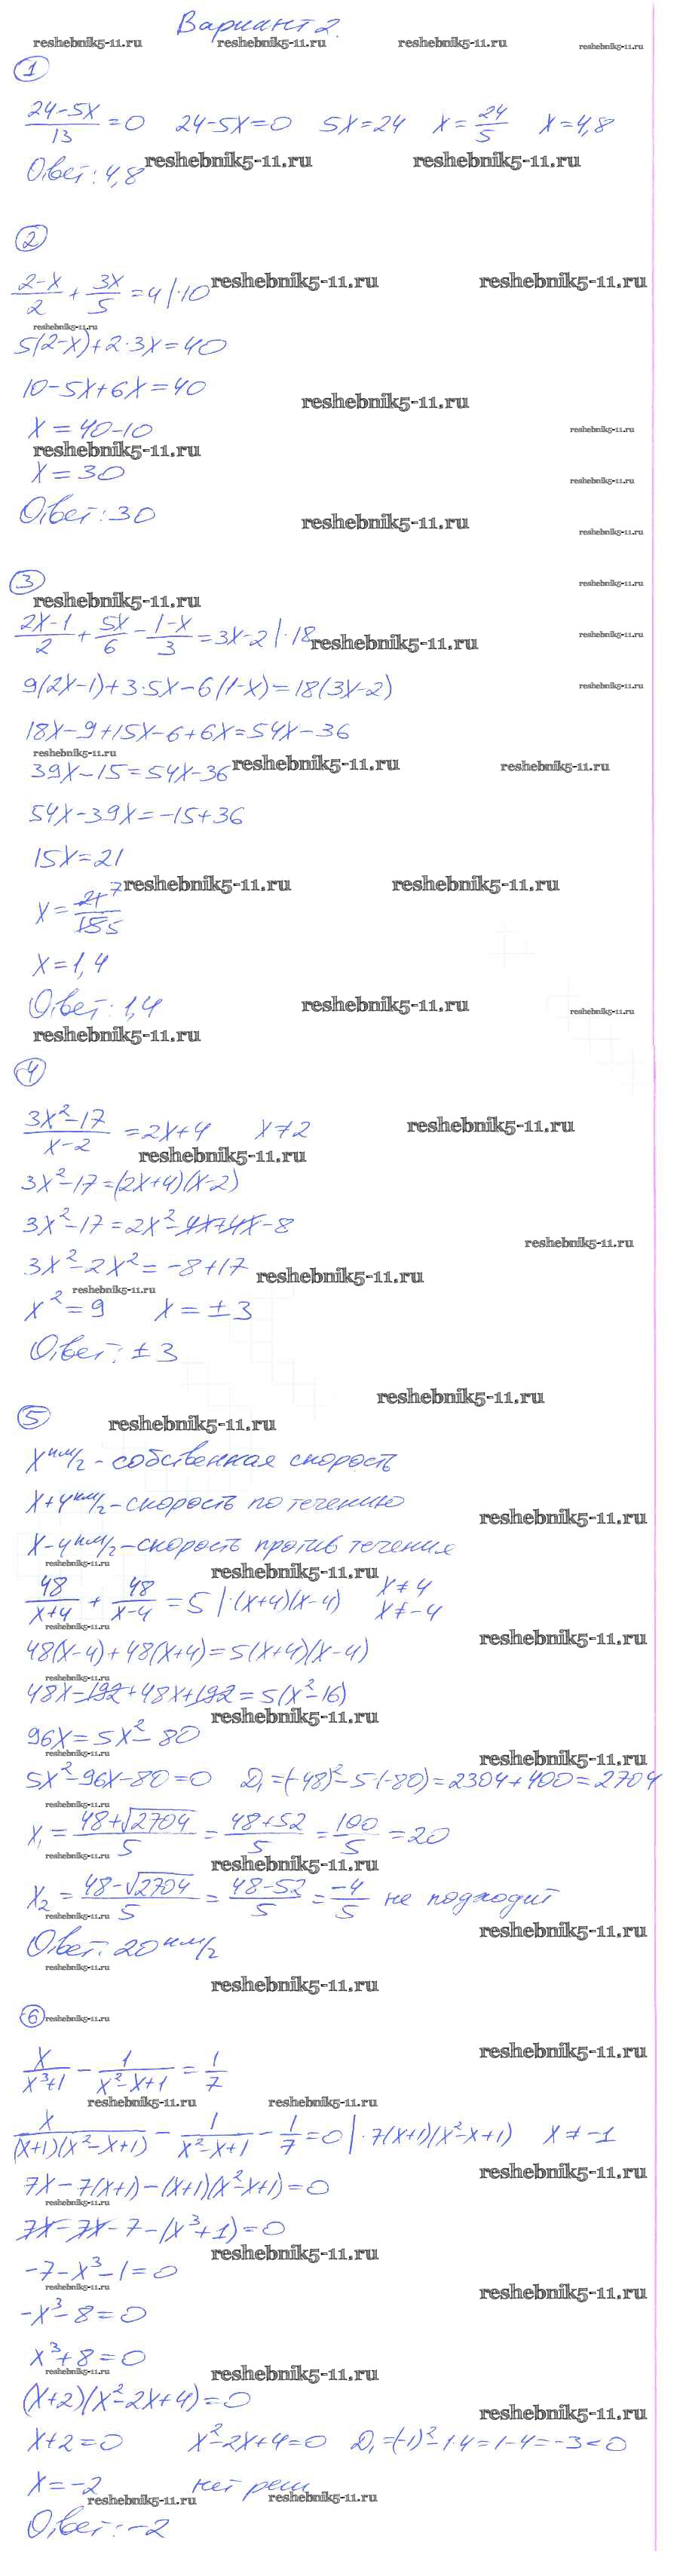 Вариант 2.
reshebnik5-11.ru reshebnik5-11.ru reshebnik5-11.ru reshebnik5-11.ru
1
(24-5x)/13 = 0 24-5x=0 5x=24 x=24/5 x=4,8
Ответ: 4,8 reshebnik5-11.ru reshebnik5-11.ru
2
(2-x)/2 + 3x/5 = 4 |·10 reshebnik5-11.ru reshebnik5-11.ru
reshebnik5-11.ru
5(2-x)+2·3x=40
10-5x+6x=40
reshebnik5-11.ru
x=40-10 reshebnik5-11.ru
reshebnik5-11.ru
x=30 reshebnik5-11.ru
Ответ: 30 reshebnik5-11.ru reshebnik5-11.ru
3 reshebnik5-11.ru
reshebnik5-11.ru
(2x-1)/2 + 5x/6 - (1-x)/3 = 3x-2 |·18 reshebnik5-11.ru reshebnik5-11.ru
9(2x-1)+3·5x-6(1-x)=18(3x-2) reshebnik5-11.ru
18x-9+15x-6+6x=54x-36
reshebnik5-11.ru
39x-15=54x-36 reshebnik5-11.ru reshebnik5-11.ru
54x-39x=-15+36
15x=21
reshebnik5-11.ru reshebnik5-11.ru
x= 21 7/15 5
x=1,4
Ответ: 1,4 reshebnik5-11.ru reshebnik5-11.ru
reshebnik5-11.ru
4
(3x²-17)/(x-2) = 2x+4 x≠2 reshebnik5-11.ru
reshebnik5-11.ru
3x²-17=(2x+4)(x-2)
3x²-17=2x²-4x+4x-8
reshebnik5-11.ru
3x²-2x²=-8+17 reshebnik5-11.ru
reshebnik5-11.ru
x²=9 x=±3
Ответ: ±3
reshebnik5-11.ru
5 reshebnik5-11.ru
x км/ч - собственная скорость
x+4 км/ч - скорость по течению
reshebnik5-11.ru
x-4 км/ч - скорость против течения
reshebnik5-11.ru reshebnik5-11.ru
48/(x+4) + 48/(x-4) = 5 |·(x+4)(x-4) x≠4
x≠-4
reshebnik5-11.ru reshebnik5-11.ru
48(x-4)+48(x+4)=5(x+4)(x-4)
reshebnik5-11.ru
48x-192+48x+192=5(x²-16)
reshebnik5-11.ru
96x=5x²-80
reshebnik5-11.ru reshebnik5-11.ru
5x²-96x-80=0 D₁=(-48)²-5·(-80)=2304+400=2704
reshebnik5-11.ru
x₁=(48+√2704)/5=(48+52)/5=100/5=20
reshebnik5-11.ru reshebnik5-11.ru
x₂=(48-√2704)/5=(48-52)/5=-4/5 не подходит
reshebnik5-11.ru reshebnik5-11.ru
Ответ: 20 км/ч
reshebnik5-11.ru reshebnik5-11.ru
6 reshebnik5-11.ru
reshebnik5-11.ru
x/(x³+1) - 1/(x²-x+1) = 1/7
reshebnik5-11.ru reshebnik5-11.ru
x/((x+1)(x²-x+1)) - 1/(x²-x+1) - 1/7 = 0 |·7(x+1)(x²-x+1) x≠-1
reshebnik5-11.ru
7x-7(x+1)-(x+1)(x²-x+1)=0
reshebnik5-11.ru
7x-7x-7-(x³+1)=0
reshebnik5-11.ru
-7-x³-1=0
reshebnik5-11.ru reshebnik5-11.ru
-x³-8=0
x³+8=0
reshebnik5-11.ru reshebnik5-11.ru
(x+2)(x²-2x+4)=0
reshebnik5-11.ru
x+2=0 x²-2x+4=0 D₁=(-1)²-1·4=1-4=-3<0
x=-2 нет реш
reshebnik5-11.ru reshebnik5-11.ru
Ответ: -2